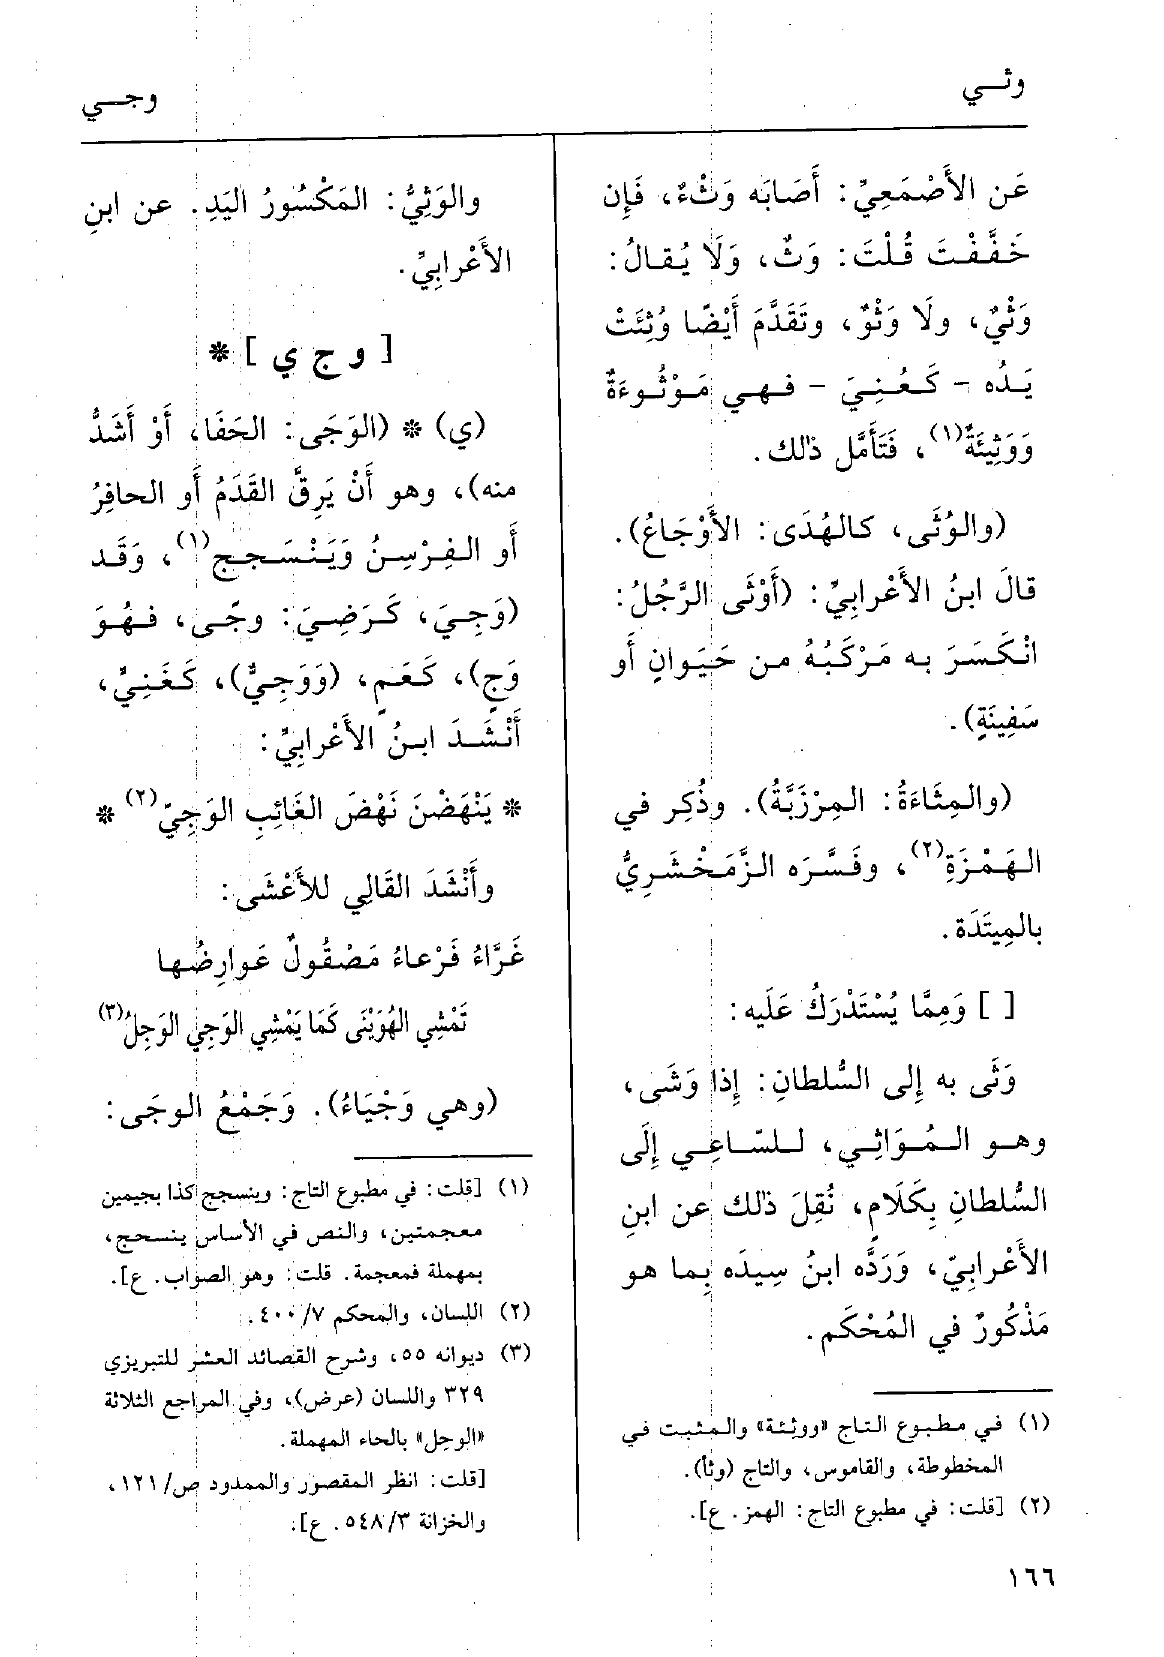 وثـي
وجـي
عَن الأَصْمَعِيِّ: أَصَابَه وَثْءٌ، فَإِن
خَفَّفْتَ قُلْتَ: وَثٌ، وَلَا يُقالُ:
وَثْيٌ، ولَا وَثْوٌ، وتَقَدَّمَ أَيْضًا وُثِئَتْ
يَدُه - كَعُنِيَ - فهي مَوْثُوءَةٌ
وَوَثِيئَةٌ(١)، فَتَأَمَّل ذٰلك.
(والوُثَى، كالهُدَى: الأَوْجَاعُ).
قالَ ابنُ الأَعْرابِيِّ: (أَوْثَى الرَّجُلُ:
انْكَسَرَ به مَرْكَبُهُ من حَيَوانٍ أَو
سَفِينَةٍ).
(والمِثَاءَةُ: المِرْزَبَّةُ). وذُكِر في
الهَمْزَةِ(٢)، وفَسَّرَه الزَّمَخْشَرِيُّ
بالمِيتَدَة.
[ ] وَمِمَّا يُسْتَدْرَكُ عَلَيه:
وَثَى به إِلى السُّلطانِ: إِذا وَشَى،
وهو المُوَاثِي، للسّاعِي إِلَى
السُّلطانِ بِكَلَامٍ، نُقِلَ ذٰلك عن ابنِ
الأَعْرابِيّ، وَرَدَّه ابنُ سِيدَه بِما هو
مَذْكُورٌ في المُحْكَم.
(١) في مطبوع التاج «ووثئة» والمثبت في
المخطوطة، والقاموس، والتاج (وثأ).
(٢) [قلت: في مطبوع التاج: الهمز. ع].
١٦٦
والوَثِيُّ: المَكْسُورُ اليَدِ. عن ابنِ
الأَعْرابِيِّ.
[ و ج ي ] *
(ي) * (الوَجَى: الحَفَا، أَوْ أَشَدُّ
منه)، وهو أَنْ يَرِقَّ القَدَمُ أَو الحافِرُ
أَو الفِرْسِنُ وَيَنْسَجِج(١)، وَقَد
(وَجِيَ، كَرَضِيَ: وجًى، فهُوَ
وَجٍ)، كَعَمٍ، (وَوَجِيٌّ)، كَغَنِيٍّ،
أَنْشَدَ ابنُ الأَعْرابِيِّ:
* يَنْهَضْنَ نَهْضَ الغَائِبِ الوَجِيّ(٢) *
وأَنْشَدَ القَالِي للأَعْشَى:
غَرَّاءُ فَرْعاءُ مَصْقُولٌ عَوارِضُها
تَمْشِي الهُوَيْنَى كَمَا يَمْشِي الوَجِي الوَجِلُ(٣)
(وهي وَجْيَاءُ). وَجَمْعُ الوجَى:
(١) [قلت: في مطبوع التاج: وينسجج كذا بجيمين
معجمتين، والنص في الأساس ينسحج،
بمهملة فمعجمة. قلت: وهو الصواب. ع].
(٢) اللسان، والمحكم ٤٠٠/٧.
(٣) ديوانه ٥٥، وشرح القصائد العشر للتبريزي
٣٢٩ واللسان (عرض)، وفي المراجع الثلاثة
«الوحل» بالحاء المهملة.
[قلت: انظر المقصور والممدود ص/١٢١،
والخزانة ٥٤٨/٣. ع].